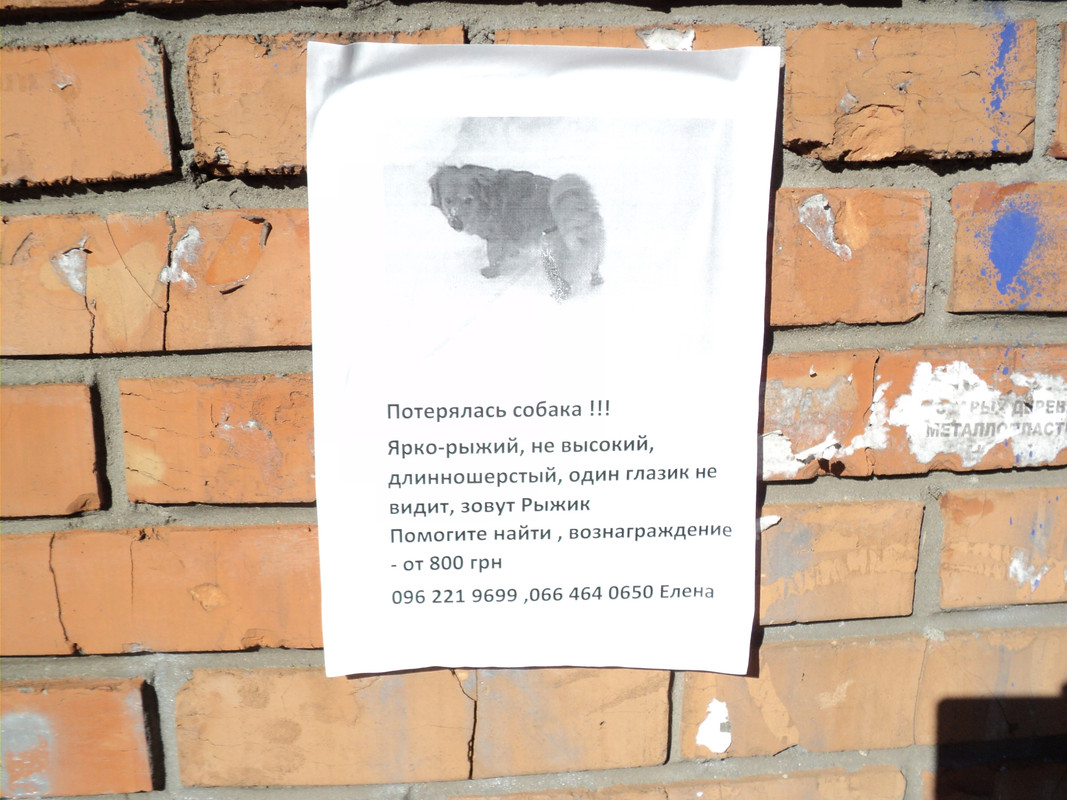 Потерялась собака !!!
Ярко-рыжий, не высокий,
длинношерстый, один глазик не
видит, зовут Рыжик
Помогите найти , вознаграждение
- от 800 грн
096 221 9699 ,066 464 0650 Елена